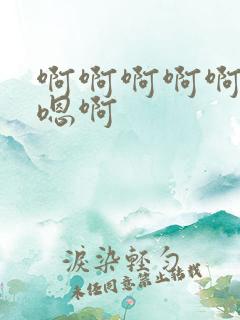 啊啊啊啊啊
嗯啊
淚染輕勻
未经同意禁止转载